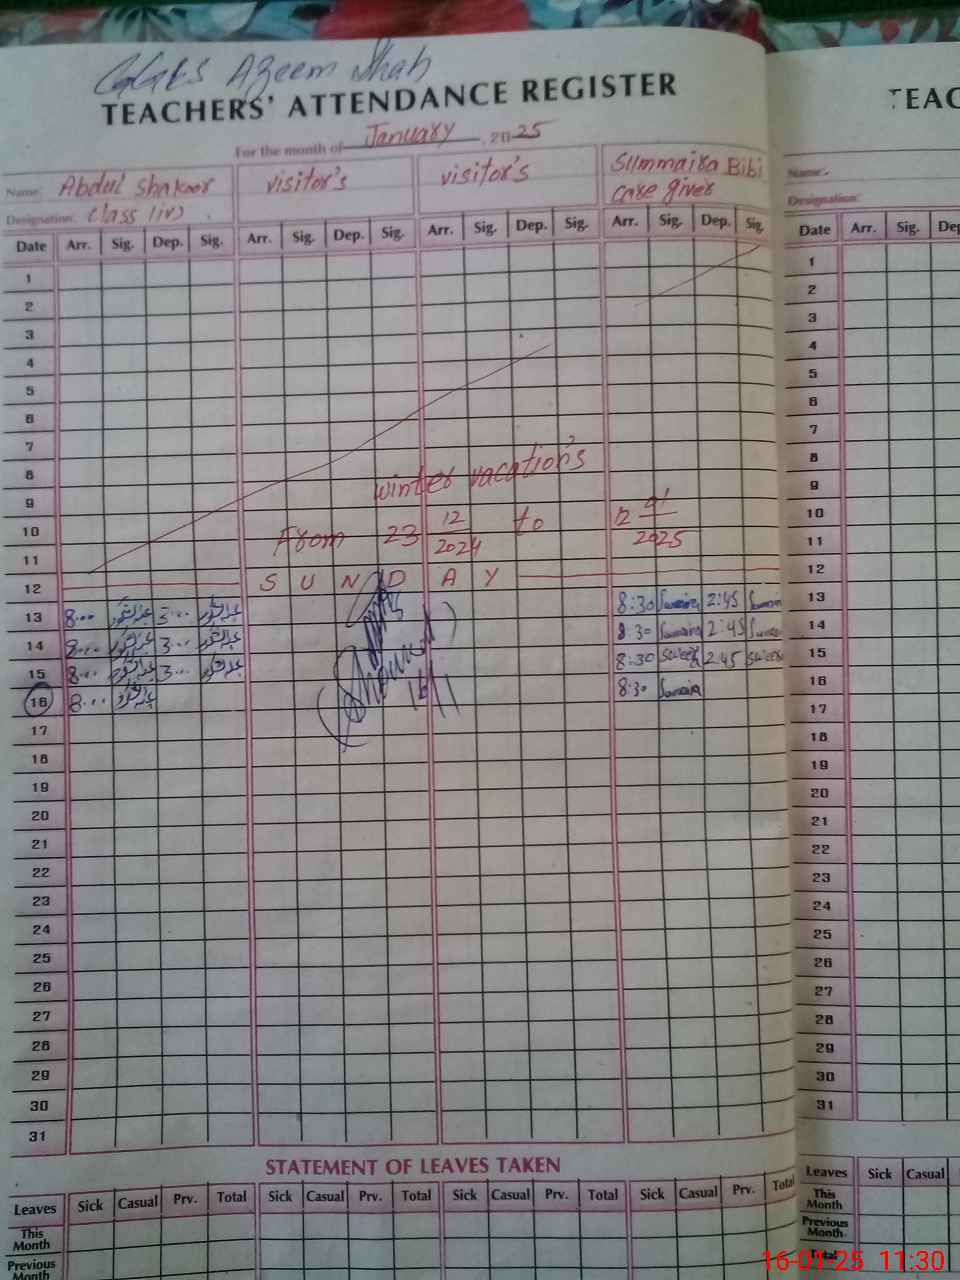 GGES Azeem Shah
TEACHERS' ATTENDANCE REGISTER
For the month of January, 2025
Name: Abdul Shakoor visitor's visitor's Summaira Bibi
Designation: Class (iv) care giver
Date Arr. Sig. Dep. Sig. Arr. Sig. Dep. Sig. Arr. Sig. Dep. Sig. Arr. Sig. Dep. Sig.
1
2
3
4
5
6
7
8 winter vacation's
9
10 From 23 12/2024 to 12 01/2025
11
12 SUNDAY
13 8... عبدالشکور 3... عبدالشکور 8:30 Sumaira 2:45
14 8... عبدالشکور 3... عبدالشکور 8:30 Sumaira 2:45
15 8... عبدالشکور 3... عبدالشکور 8:30 2:45
16 8... عبدالشکور 16/1 8:30 Sumaira
17
18
19
20
21
22
23
24
25
26
27
28
29
30
31
STATEMENT OF LEAVES TAKEN
Leaves Sick Casual Prv. Total Sick Casual Prv. Total Sick Casual Prv. Total Sick Casual Prv. Total
This Month
Previous
TEAC
Name:
Designation:
Date Arr. Sig. Dep
1
2
3
4
5
6
7
8
9
10
11
12
13
14
15
16
17
18
19
20
21
22
23
24
25
26
27
28
29
30
31
Leaves Sick Casual
This Month
Previous Month
Total
16-01-25 11:30